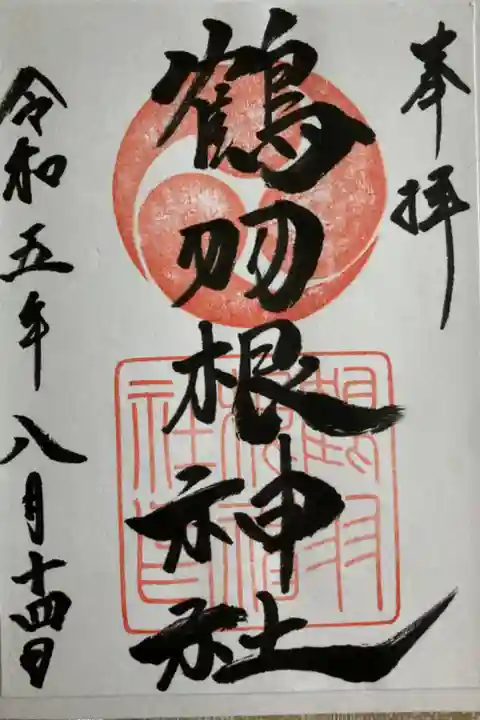 奉拝
鶴羽根神社
令和五年八月十四日